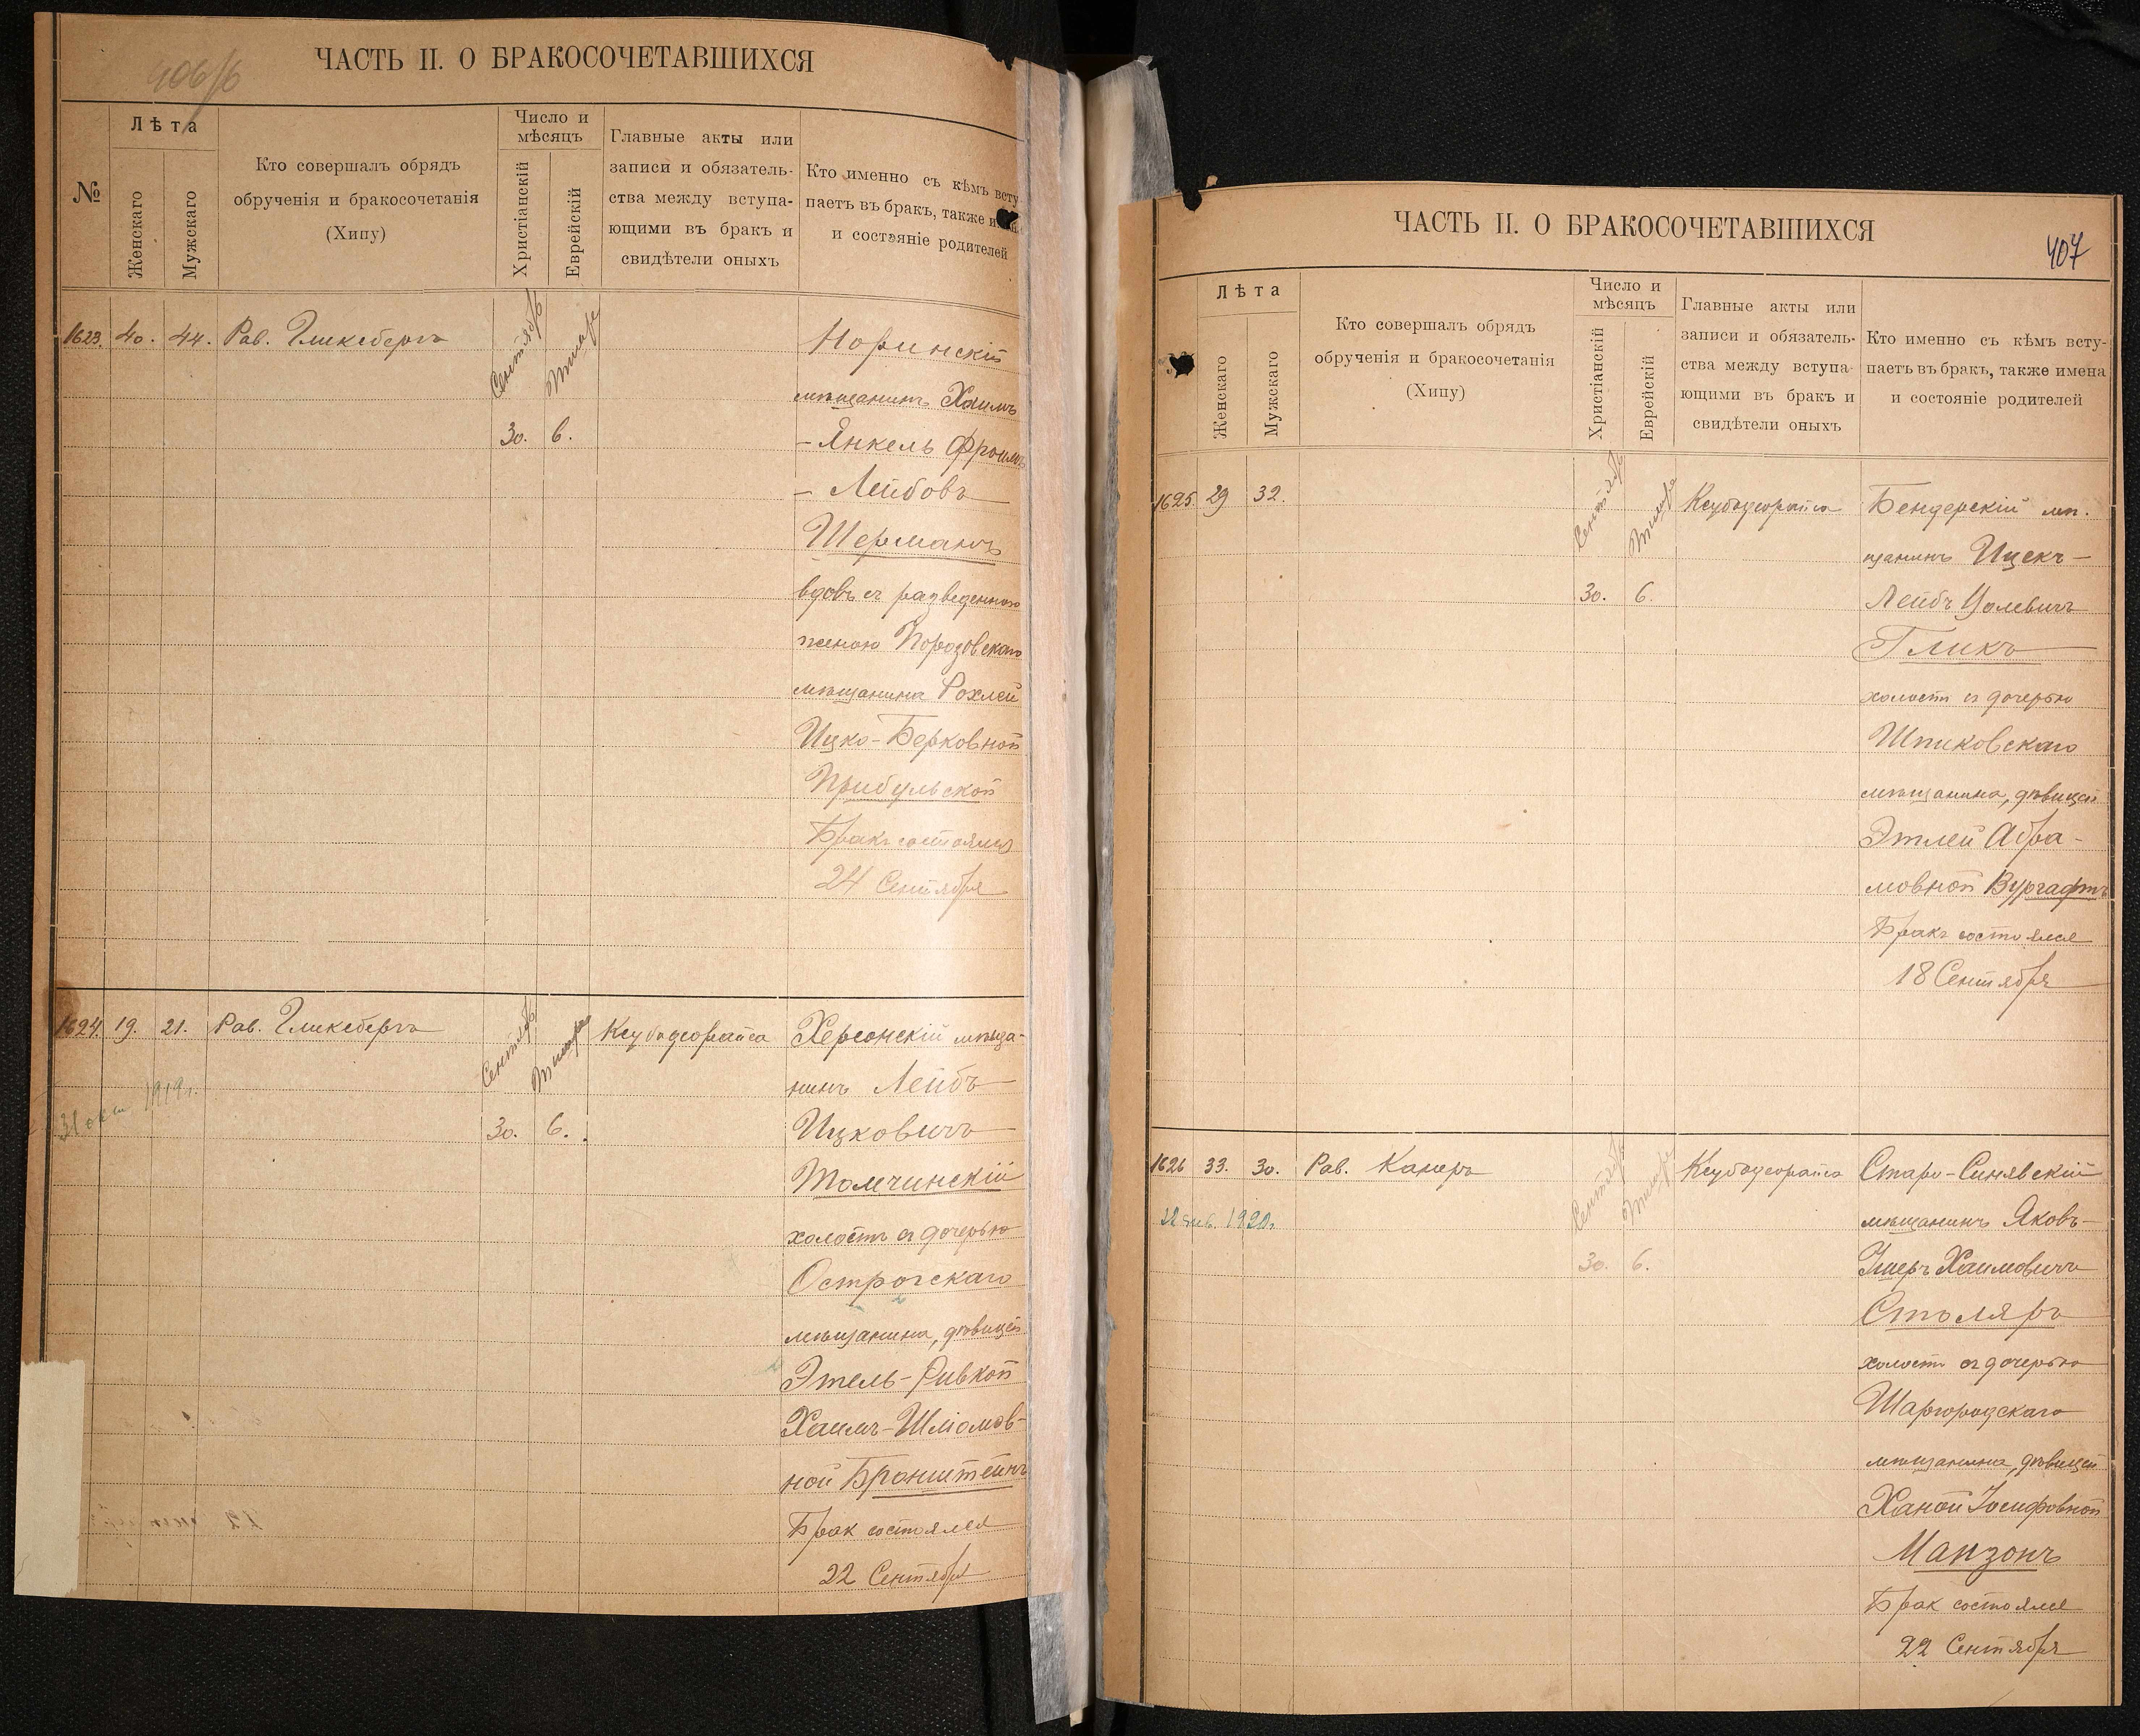 406/б
ЧАСТЬ II. О БРАКОСОЧЕТАВШИХСЯ
№
Лѣта
Женскаго
Мужскаго
Кто совершалъ обрядъ
обрученія и бракосочетанія
(Хипу)
Число и
мѣсяцъ
Христіанскій
Еврейскій
Главные акты или
записи и обязатель-
ства между вступа-
ющими въ бракъ и
свидѣтели оныхъ
Кто именно съ кѣмъ всту
паетъ въ бракъ, также
и состояніе родителей
1623. 40. 44. Рав. Гликсбергъ
Сентябрь
Тишре
30. 6.
Норинскій
мѣщанинъ Хаимъ
- Янкель Фроимъ
- Лейбовъ
Шерманъ
вдовъ съ разведенною
женою Порозовскаго
мѣщанина Рохлей
Ицко-Берковной
Прибульской
Бракъ состоялся
24 Сентября
1624. 19. 21. Рав. Гликсбергъ
Сентябрь
Тишре
30. 6.
31 окт 1919 г.
Ксубадеорайса
Херсонскій мѣща-
нинъ Лейбъ
Ицковичъ
Толчинскій
холостъ съ дочерью
Острогскаго
мѣщанина, дѣвицей
Этель-Ривкой
Хаимъ-Шліомов-
ной Бронштейнъ
Брак состоялся
22 Сентября
ЧАСТЬ II. О БРАКОСОЧЕТАВШИХСЯ
407
Лѣта
Женскаго
Мужскаго
Кто совершалъ обрядъ
обрученія и бракосочетанія
(Хипу)
Число и
мѣсяцъ
Христіанскій
Еврейскій
Главные акты или
записи и обязатель-
ства между вступа-
ющими въ бракъ и
свидѣтели оныхъ
Кто именно съ кѣмъ всту-
паетъ въ бракъ, также имена
и состояніе родителей
1625. 29 32.
Сентябрь
Тишре
30. 6.
Ксубадеорайса
Бендерскій мѣ-
щанинъ Ицекъ-
Лейбъ
Гликъ
холостъ съ дочерью
Шпиковскаго
мѣщанина, дѣвицей
Этлей Абра-
мовной Вургафтъ
Бракъ состоялся
18 Сентября
1626 33. 30. Рав. Канеръ
Сентябрь
Тишре
30. 6.
22 янв. 1920 г.
Ксубадеорайса
Старо-Синявскій
мѣщанинъ Яковъ-
Ушеръ Хаимовичъ
Столяръ
холостъ съ дочерью
Шаргородскаго
мѣщанина, дѣвицей
Ханой Іосифовной
Манзонъ
Брак состоялся
22 Сентября